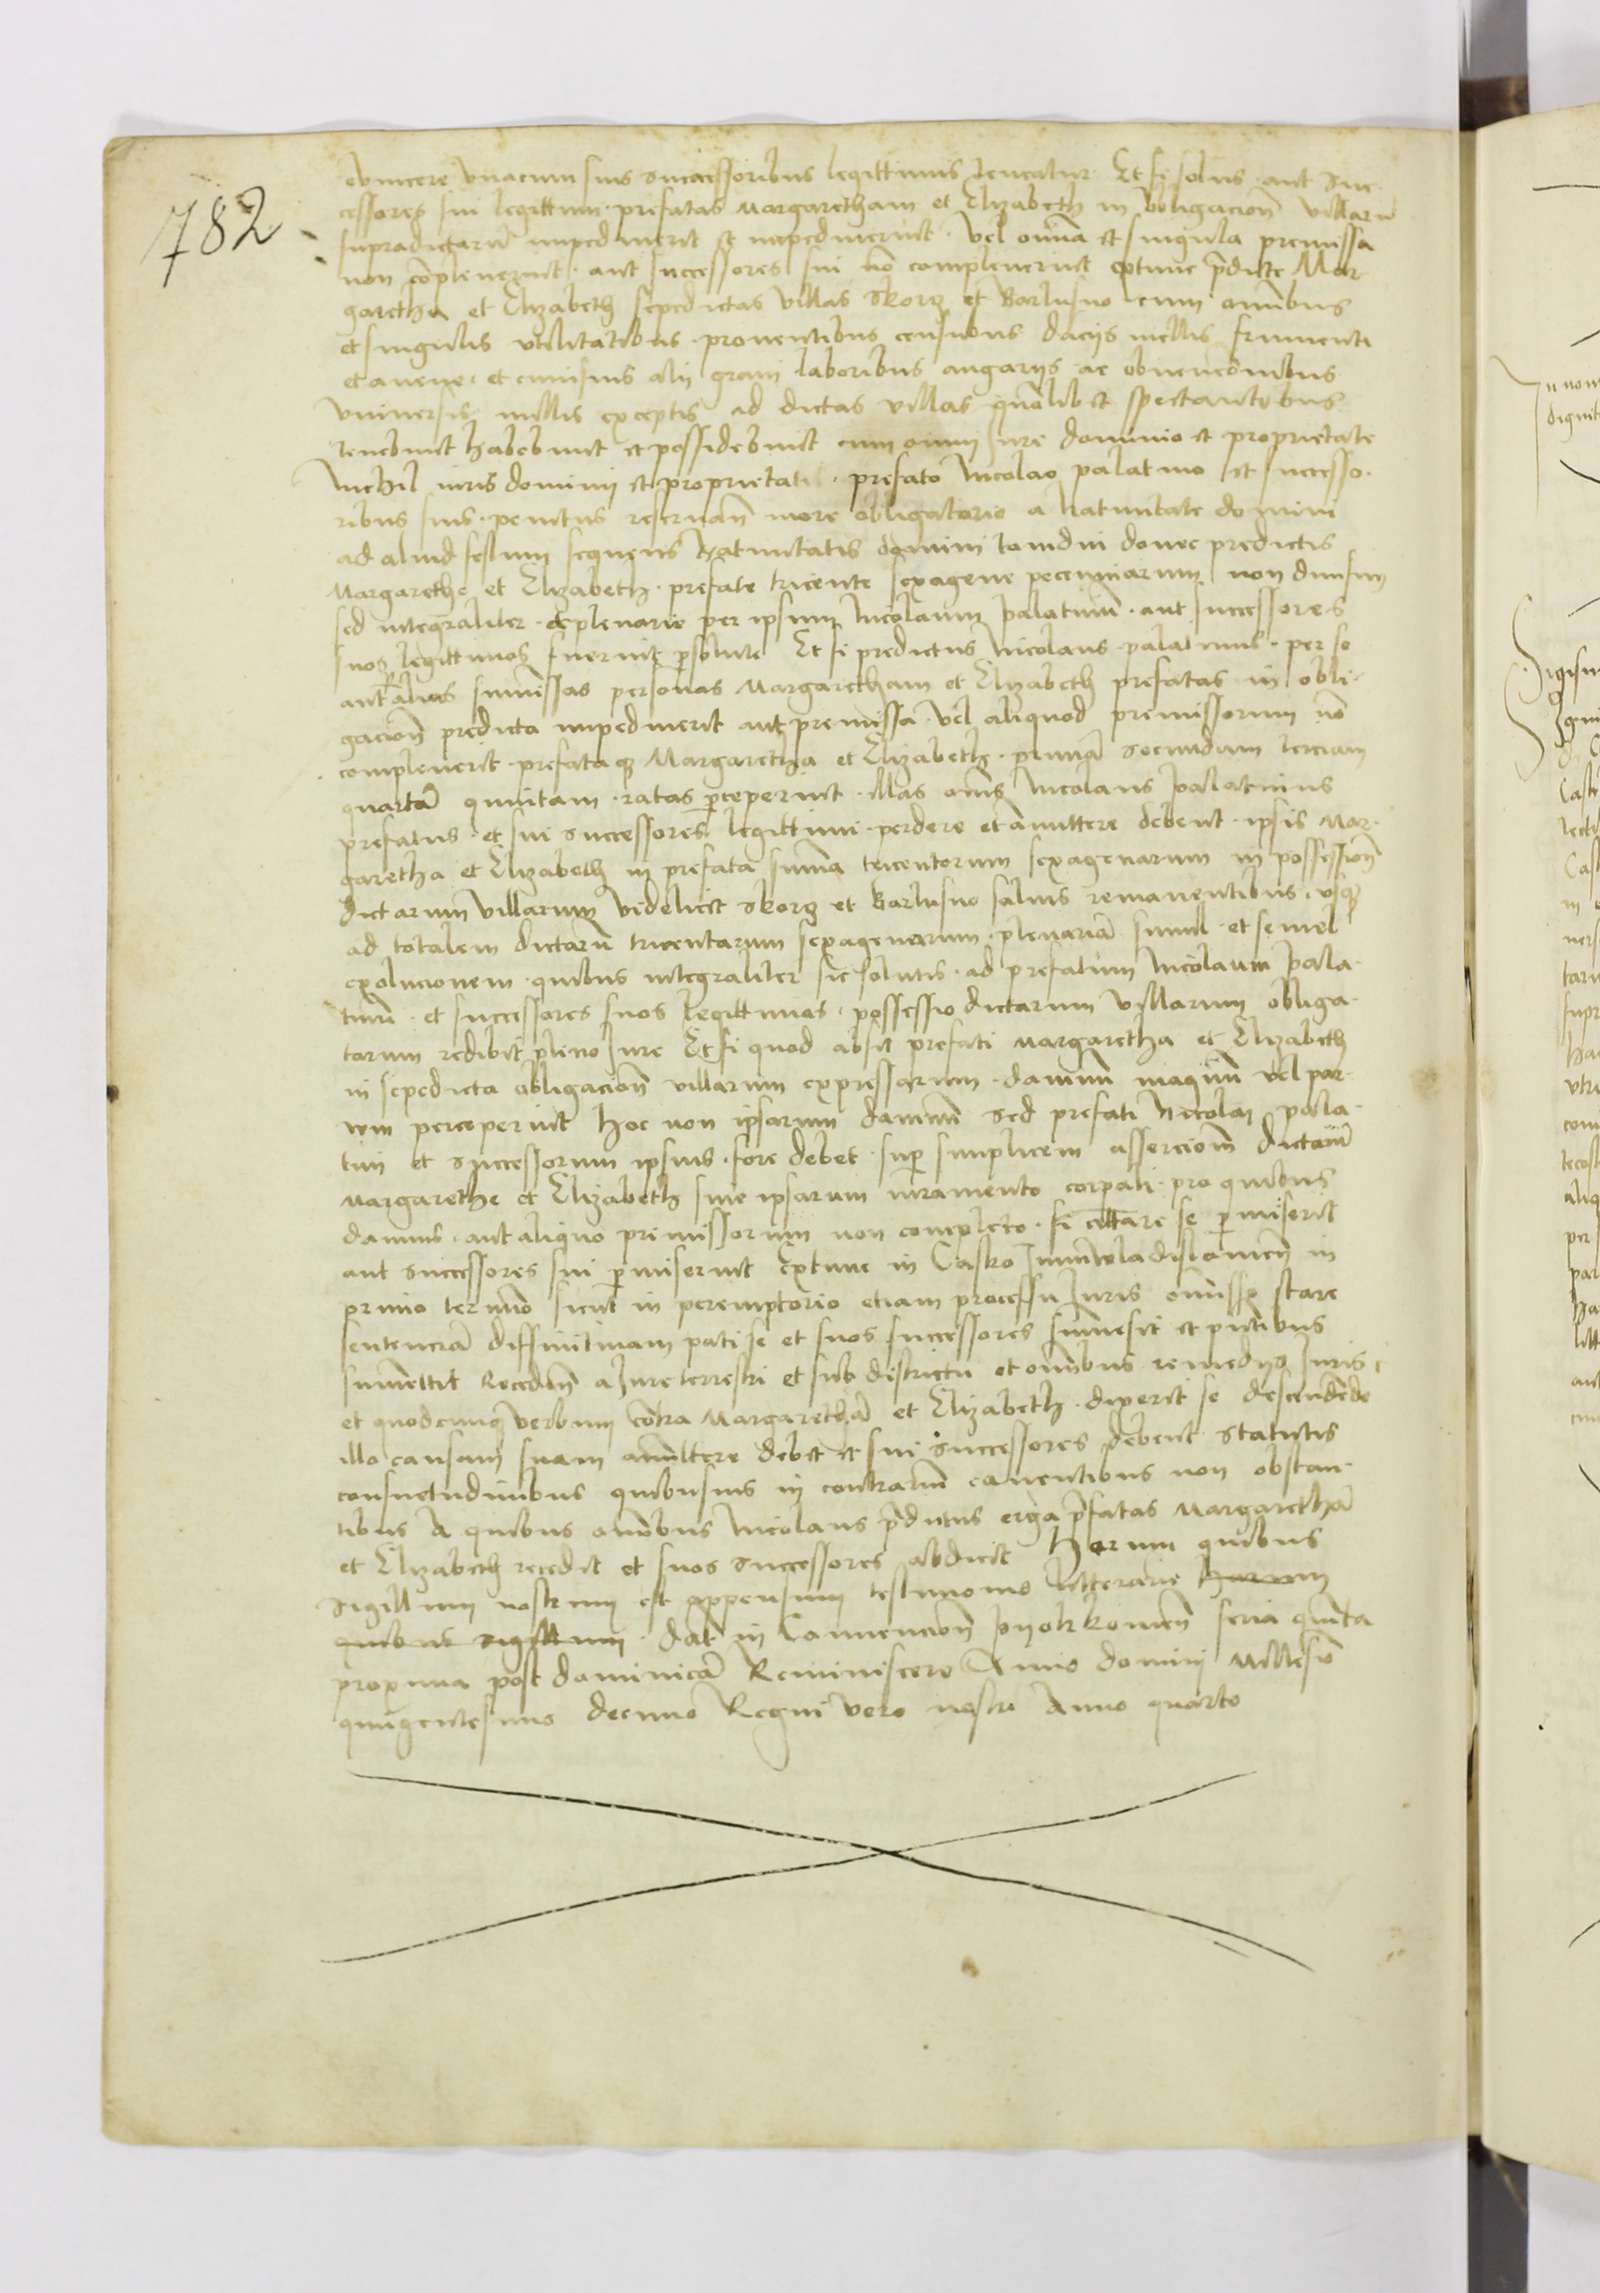 782
evincere vnacum suis successoribus legittimis teneatur Et si solus aut suc
cessores sui legittimi prefatas Margaretham et Elizabeth in obligacion villarū
supradictarū impedinerit et impedinerint vel omīa et singula premissa
non cōplenerint aut successores sui nō complenerint extunc p̄dicte Mar
garetha et Elizabeth sepedictas villas Skorz et Barlusno cum omībus
et singulis vtilitatibus prouentibus censibus daciis mellis frumenti
et auene et cuiusuis alij grani laboribus angariis ac obuencōnibus
vniuersis nullis exceptis ad dictas villas quōlibet spectantibus
tenebunt habebunt et possidebunt cum omni Jure dominio et proprietate
Nichil iuris dominij et proprietatis prefato Nicolao palatino et successo
ribus suis penitus reseruan̄ more obligatorio a Natiuitate domini
ad aliud festum sequens Natiuitatis domini tamdiu donec predictis
Margarethe et Elizabeth prefate tricente sexagene pecuniarum non diuisim
sed integraliter et plenarie per ipsum Nicolaum Palatinū aut successores
suos legittimos fuerint p̄solute Et si predictus Nicolaus palatinus per se
aut alias summissas personas Margaretham et Elizabeth prefatas in obli
gacion̄ predicta impedinerit aut premissa vel aliquod premissorum nō
complenerit prefataq̄ Margaretha et Elizabeth primā secundam terciam
quartā quintam ratas p̄ceperint illas om̄s Nicolaus Palatinus
prefatus et sui successores legittimi perdere et amittere debent ipsis Mar
garetha et Elizabeth in prefata sum̄a tricentorum sexagenarum in possession̄
dictarum villarum videlicet Skorz et Barlusno saluis remanentibus vsq̄
ad totalem dictarū tricentarum sexagenarum plenariā simul et semel
exolucionem quibus integraliter sic solutis ad prefatum Nicolaum pala
tinū et successores suos legittimos possessio dictarum villarum obliga
tarum redibit pleno Jure Et si quod absit prefati Margaretha et Elizabeth
in sepedicta obligacion̄ villarum expressarum damnū magnū vel par
uum perceperint hoc non ipsarum damnū sed prefati Nicolai pala
tini et successorum ipsius fore debet sup̄ simplicem assercion̄ dictarū
Margarethe et Elizabeth sine ipsarum iuramento corpali pro quibus
damnis aut aliquo premissorum non completo si cittare se p̄miserit
aut successores sui p̄miserint Extunc in Castro Juniwladislauien̄ in
primo termino sicut in peremptorio etiam processu Juris omisso stare
sentenciā diffinitiuam pati se et suos successores summisit et p̄ntibus
summittit Recedēn a Jure terrestri et sub districtu et omībus remedijs Juris
et quodcunq̄ verbum contra Margarethā et Elizabeth dixerit se descendēdo
illo causam suam amittere debet et sui successores debent statutis
consuetudinibus quibusuis in contrariū cauentibus non obstan
tibus A quibus omībus Nicolaus p̄dictus erga p̄fatas Margarethā
et Elizabeth recedit et suos successores abducit Harum quibus
sigillum nostrum est appensum testimonio litterarū harum
quibus sigillum dat in Conuencion̄ Pyotrkouien̄ feria quinta
proxima post dominicā Reminiscere Anno domini Millesīo
quingentesimo decimo Regni vero nostri Anno quarto